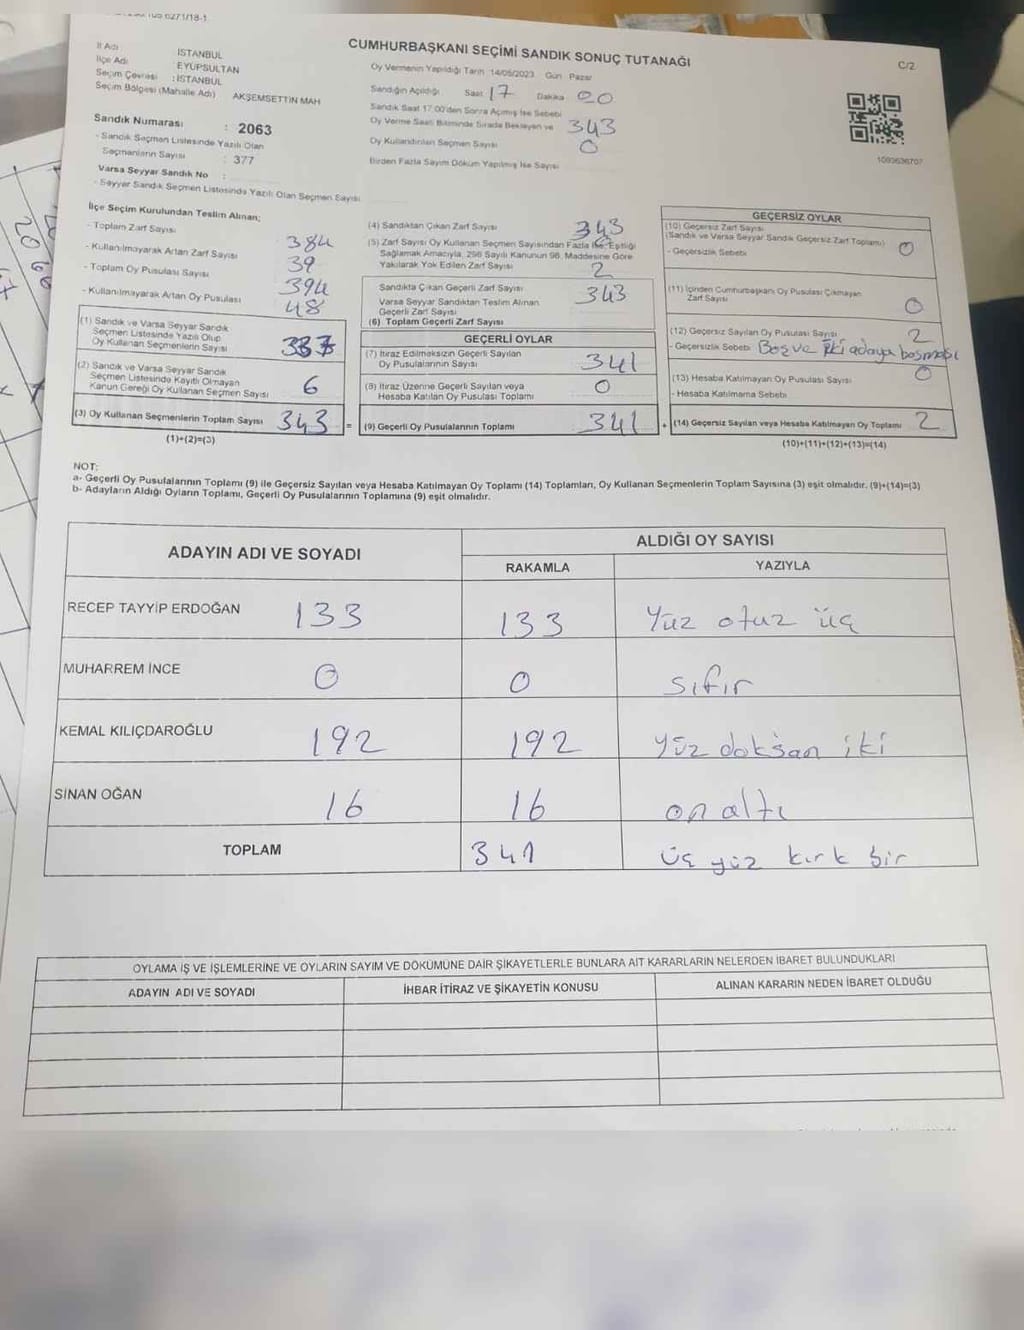 6271/18-1
CUMHURBAŞKANI SEÇİMİ SANDIK SONUÇ TUTANAĞI
C/2
İl Adı : İSTANBUL
İlçe Adı : EYÜPSULTAN
Seçim Çevresi : İSTANBUL
Seçim Bölgesi (Mahalle Adı) AKŞEMSETTİN MAH
Sandık Numarası : 2063
- Sandık Seçmen Listesinde Yazılı Olan
Seçmenlerin Sayısı : 377
Varsa Seyyar Sandık No :
- Seyyar Sandık Seçmen Listesinde Yazılı Olan Seçmen Sayısı
Oy Vermenin Yapıldığı Tarih 14/05/2023 Gün Pazar
Sandığın Açıldığı Saat 17 Dakika 00
Sandık Saat 17:00'den Sonra Açılmış İse Sebebi
Oy Verme Saati Bitiminde Sırada Bekleyen ve 343
Oy Kullandırılan Seçmen Sayısı 0
Birden Fazla Sayım Döküm Yapılmış İse Sayısı
1093636707
İlçe Seçim Kurulundan Teslim Alınan;
- Toplam Zarf Sayısı 384
- Kullanılmayarak Artan Zarf Sayısı 39
- Toplam Oy Pusulası Sayısı 394
- Kullanılmayarak Artan Oy Pusulası 48
(1) Sandık ve Varsa Seyyar Sandık
Seçmen Listesinde Yazılı Olup
Oy Kullanan Seçmenlerin Sayısı 337
(2) Sandık ve Varsa Seyyar Sandık
Seçmen Listesinde Kayıtlı Olmayan
Kanun Gereği Oy Kullanan Seçmen Sayısı 6
(3) Oy Kullanan Seçmenlerin Toplam Sayısı 343 =
(1)+(2)=(3)
(4) Sandıktan Çıkan Zarf Sayısı 343
(5) Zarf Sayısı Oy Kullanan Seçmen Sayısından Fazla İse, Eşitliği
Sağlamak Amacıyla, 298 Sayılı Kanunun 98. Maddesine Göre
Yakılarak Yok Edilen Zarf Sayısı 2
Sandıkta Çıkan Geçerli Zarf Sayısı 343
Varsa Seyyar Sandıktan Teslim Alınan
Geçerli Zarf Sayısı
(6) Toplam Geçerli Zarf Sayısı
GEÇERLİ OYLAR
(7) İtiraz Edilmeksizin Geçerli Sayılan
Oy Pusulalarının Sayısı 341
(8) İtiraz Üzerine Geçerli Sayılan veya
Hesaba Katılan Oy Pusulası Toplamı 0
(9) Geçerli Oy Pusulalarının Toplamı 341 +
GEÇERSİZ OYLAR
(10) Geçersiz Zarf Sayısı
(Sandık ve Varsa Seyyar Sandık Geçersiz Zarf Toplamı) 0
- Geçersizlik Sebebi
(11) İçinden Cumhurbaşkanı Oy Pusulası Çıkmayan
Zarf Sayısı 0
(12) Geçersiz Sayılan Oy Pusulası Sayısı 2
- Geçersizlik Sebebi Boş ve iki adaya basması
(13) Hesaba Katılmayan Oy Pusulası Sayısı 0
- Hesaba Katılmama Sebebi
(14) Geçersiz Sayılan veya Hesaba Katılmayan Oy Toplamı 2
(10)+(11)+(12)+(13)=(14)
NOT:
a- Geçerli Oy Pusulalarının Toplamı (9) ile Geçersiz Sayılan veya Hesaba Katılmayan Oy Toplamı (14) Toplamları, Oy Kullanan Seçmenlerin Toplam Sayısına (3) eşit olmalıdır. (9)+(14)=(3)
b- Adayların Aldığı Oyların Toplamı, Geçerli Oy Pusulalarının Toplamına (9) eşit olmalıdır.
ADAYIN ADI VE SOYADI
ALDIĞI OY SAYISI
RAKAMLA YAZIYLA
RECEP TAYYİP ERDOĞAN 133 133 Yüz otuz üç
MUHARREM İNCE 0 0 sıfır
KEMAL KILIÇDAROĞLU 192 192 yüz doksan iki
SİNAN OĞAN 16 16 on altı
TOPLAM 341 üç yüz kırk bir
OYLAMA İŞ VE İŞLEMLERİNE VE OYLARIN SAYIM VE DÖKÜMÜNE DAİR ŞİKAYETLERLE BUNLARA AİT KARARLARIN NELERDEN İBARET BULUNDUKLARI
ADAYIN ADI VE SOYADI İHBAR İTİRAZ VE ŞİKAYETİN KONUSU ALINAN KARARIN NEDEN İBARET OLDUĞU